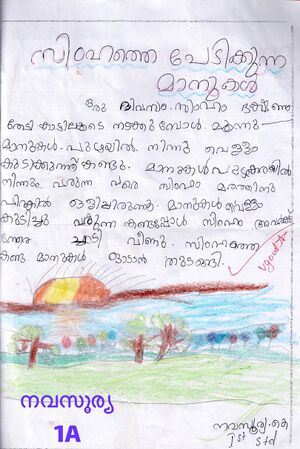 സിംഹത്തെ പേടിക്കുന്ന
മാനുകൾ
ഒരു ദിവസം സിംഹം ഭക്ഷണം
തേടി കാട്ടിലൂടെ നടക്കുമ്പോൾ മൂന്നു
മാനുകൾ പുഴയിൽ നിന്നു വെള്ളം
കുടിക്കുന്നത് കണ്ടു. മാനുകൾ പുഴക്കരയിൽ
നിന്നും വരുന്ന വരെ സിംഹം മരത്തിനു
പിറകിൽ ഒളിച്ചിരുന്നു. മാനുകൾ വെള്ളം
കുടിച്ചു വരുന്നു കണ്ടപ്പോൾ സിംഹം അവർക്ക്
നേരെ ചാടി വീണു. സിംഹത്തെ
കണ്ട മാനുകൾ ഓടാൻ തുടങ്ങി.
vgood
നവസൂര്യ
1A
നവസൂര്യ.കെ
Ist std